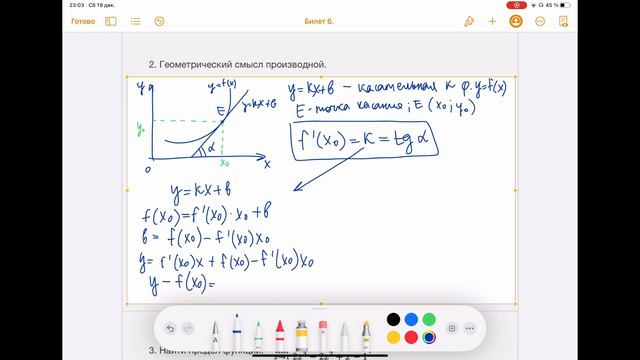 23:03 Сб 19 дек.
45 %
Готово
Билет 6.
2. Геометрический смысл производной.
y
y=f(x)
y=kx+b
E
y₀
α
0
x₀
x
y=kx+b – касательная к ф. y=f(x)
E – точка касания; E(x₀; y₀)
f'(x₀) = k = tg α
y = kx+b
f(x₀) = f'(x₀)·x₀ + b
b = f(x₀) – f'(x₀)x₀
y = f'(x₀)x + f(x₀) – f'(x₀)x₀
y – f(x₀) =
3. Найти предел функции.